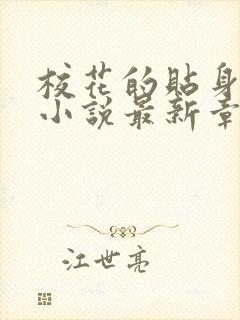 校花的貼身
小説最新章
江世亮